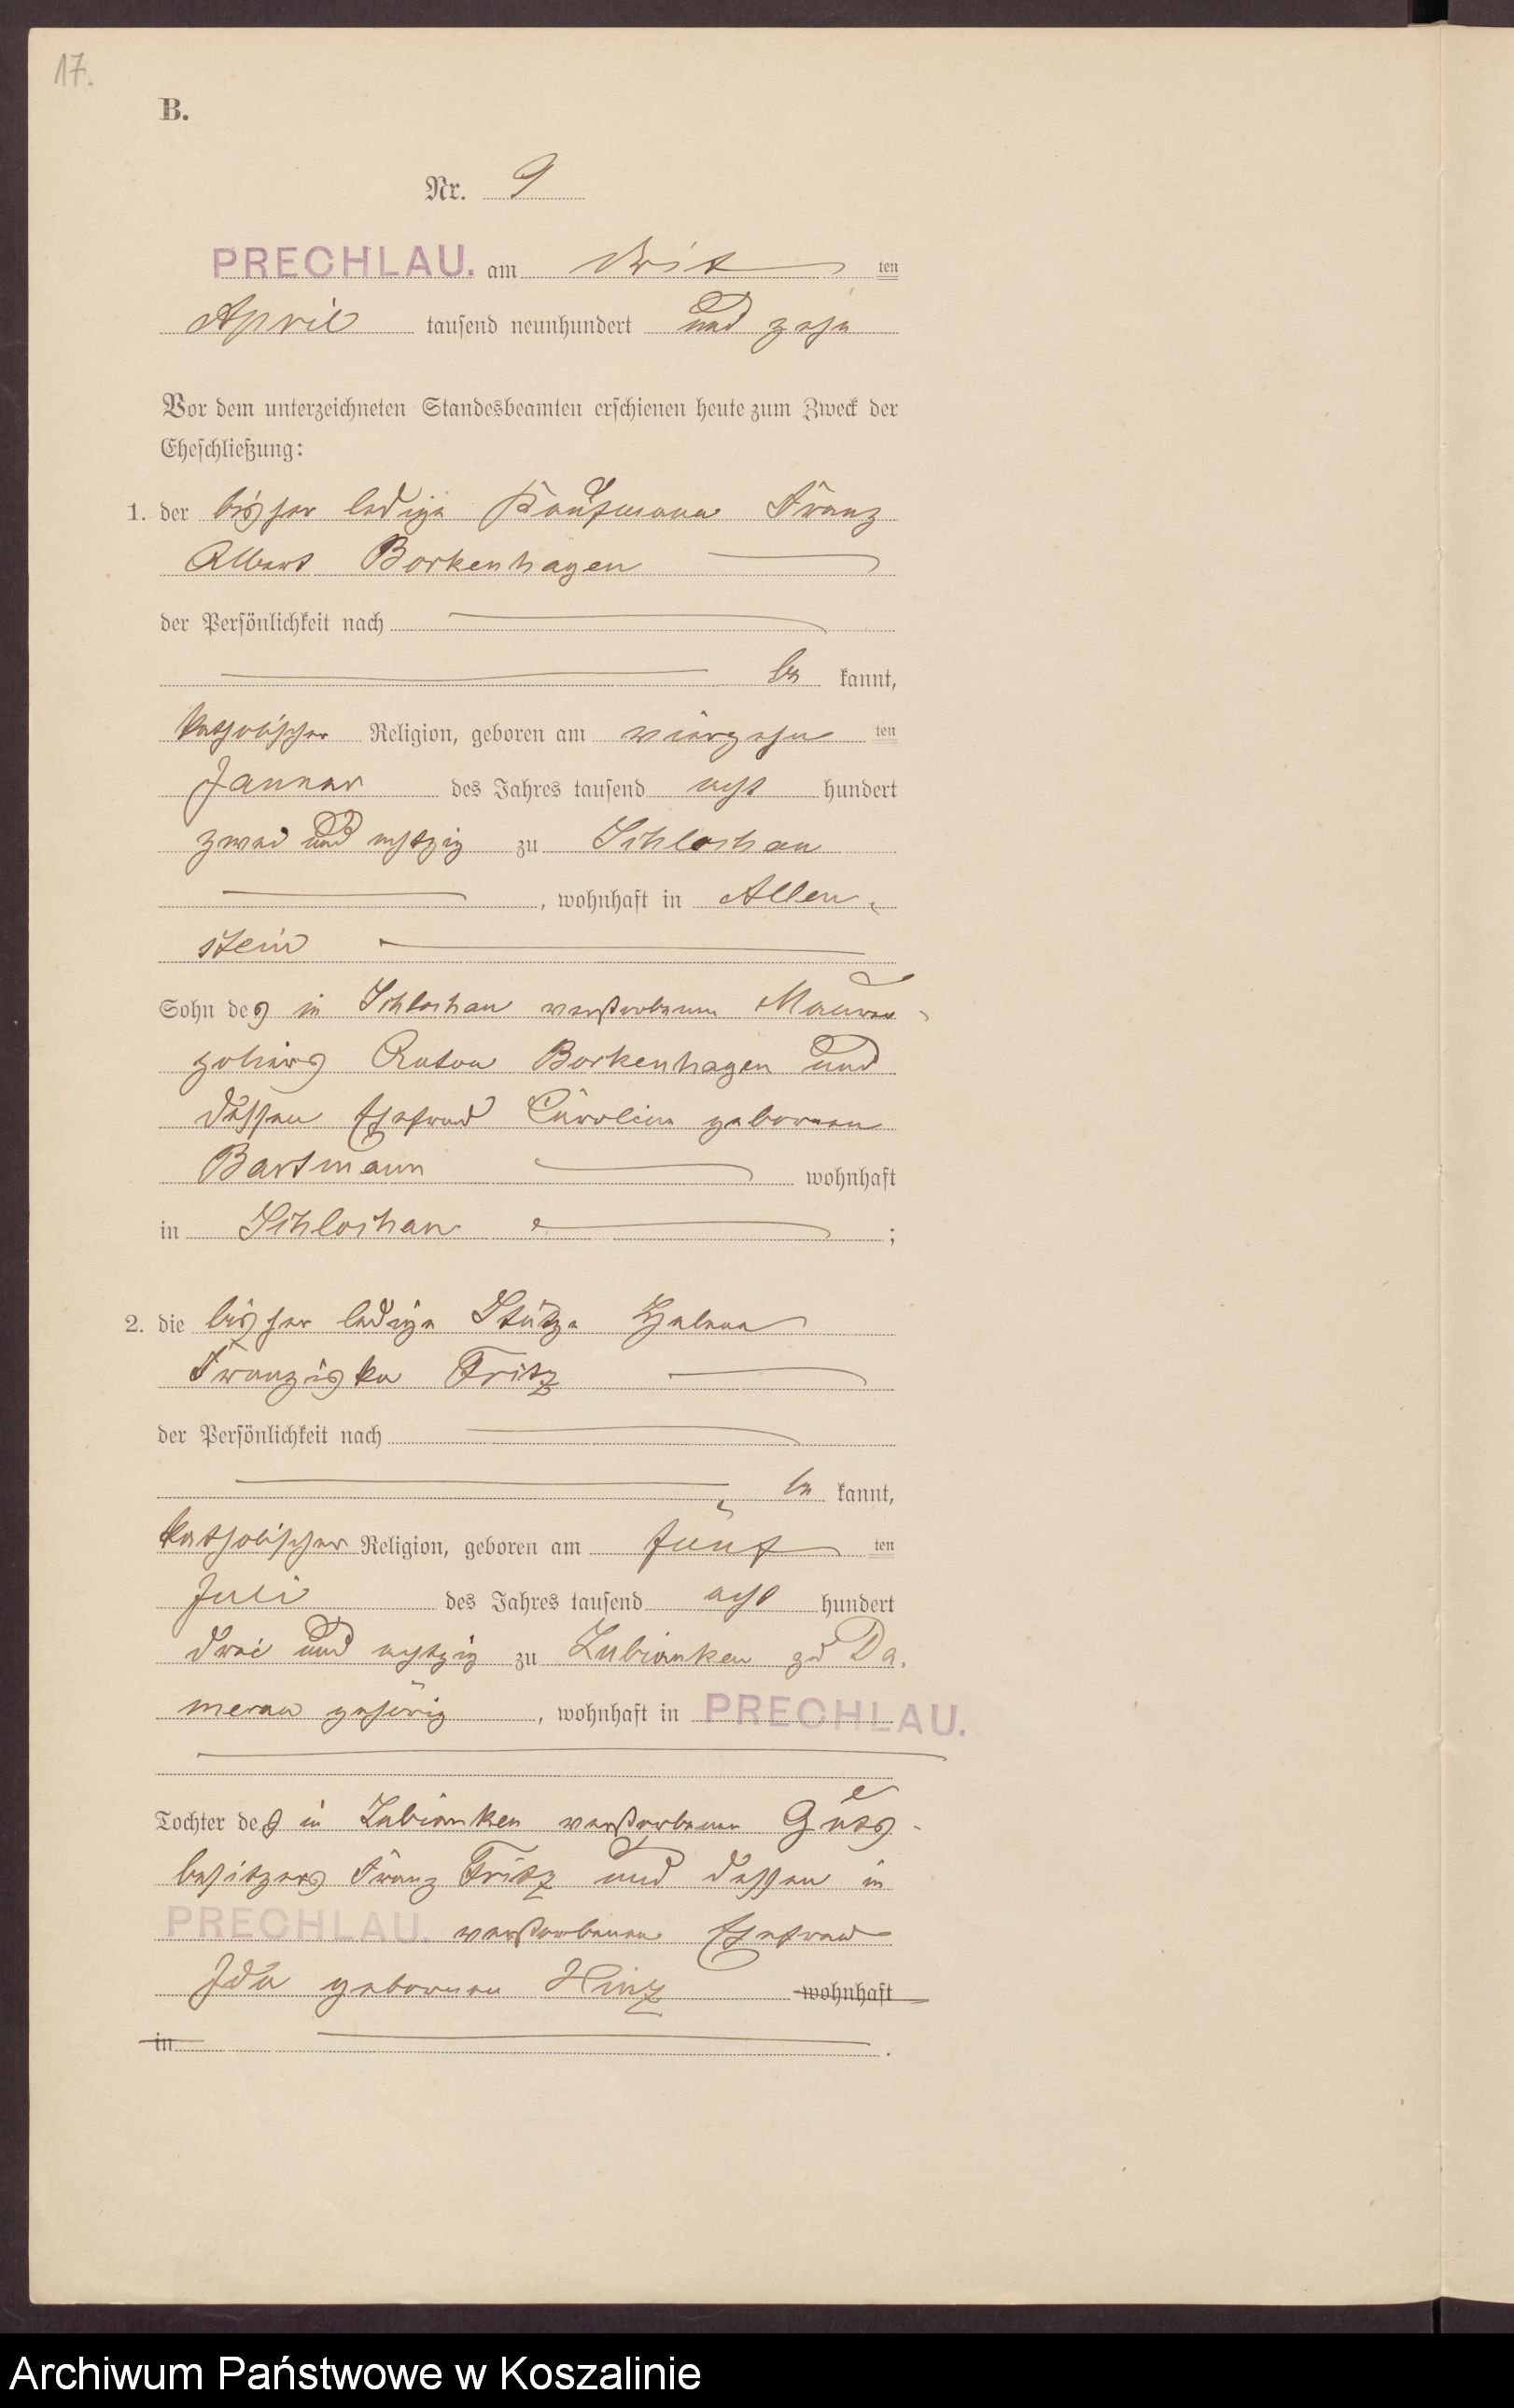 17.
B.
Nr. 9
PRECHLAU. am drit ten
April tausend neunhundert und zehn
Vor dem unterzeichneten Standesbeamten erschienen heute zum Zweck der
Eheschließung:
1. der bisher ledige Kaufmann Franz
Albert Borkenhagen
der Persönlichkeit nach
be kannt,
katholischer Religion, geboren am vierzehn ten
Januar des Jahres tausend acht hundert
zwei und achtzig zu Schlochau
, wohnhaft in Allen-
stein
Sohn des in Schlochau verstorbenen Maurer-
poliers Anton Borkenhagen und
dessen Ehefrau Caroline geborenen
Bartmann wohnhaft
in Schlochau ;
2. die bisher ledige Stütze Helene
Franziska Fritz
der Persönlichkeit nach
be kannt,
katholischer Religion, geboren am fünf ten
Juli des Jahres tausend acht hundert
drei und achtzig zu Lubianken zu Da-
merau gehörig , wohnhaft in PRECHLAU.
Tochter des in Lubianken verstorbenen Guts-
besitzers Franz Fritz und dessen in
PRECHLAU. verstorbenen Ehefrau
Ida geborenen Hinz wohnhaft
in .
Archiwum Państwowe w Koszalinie